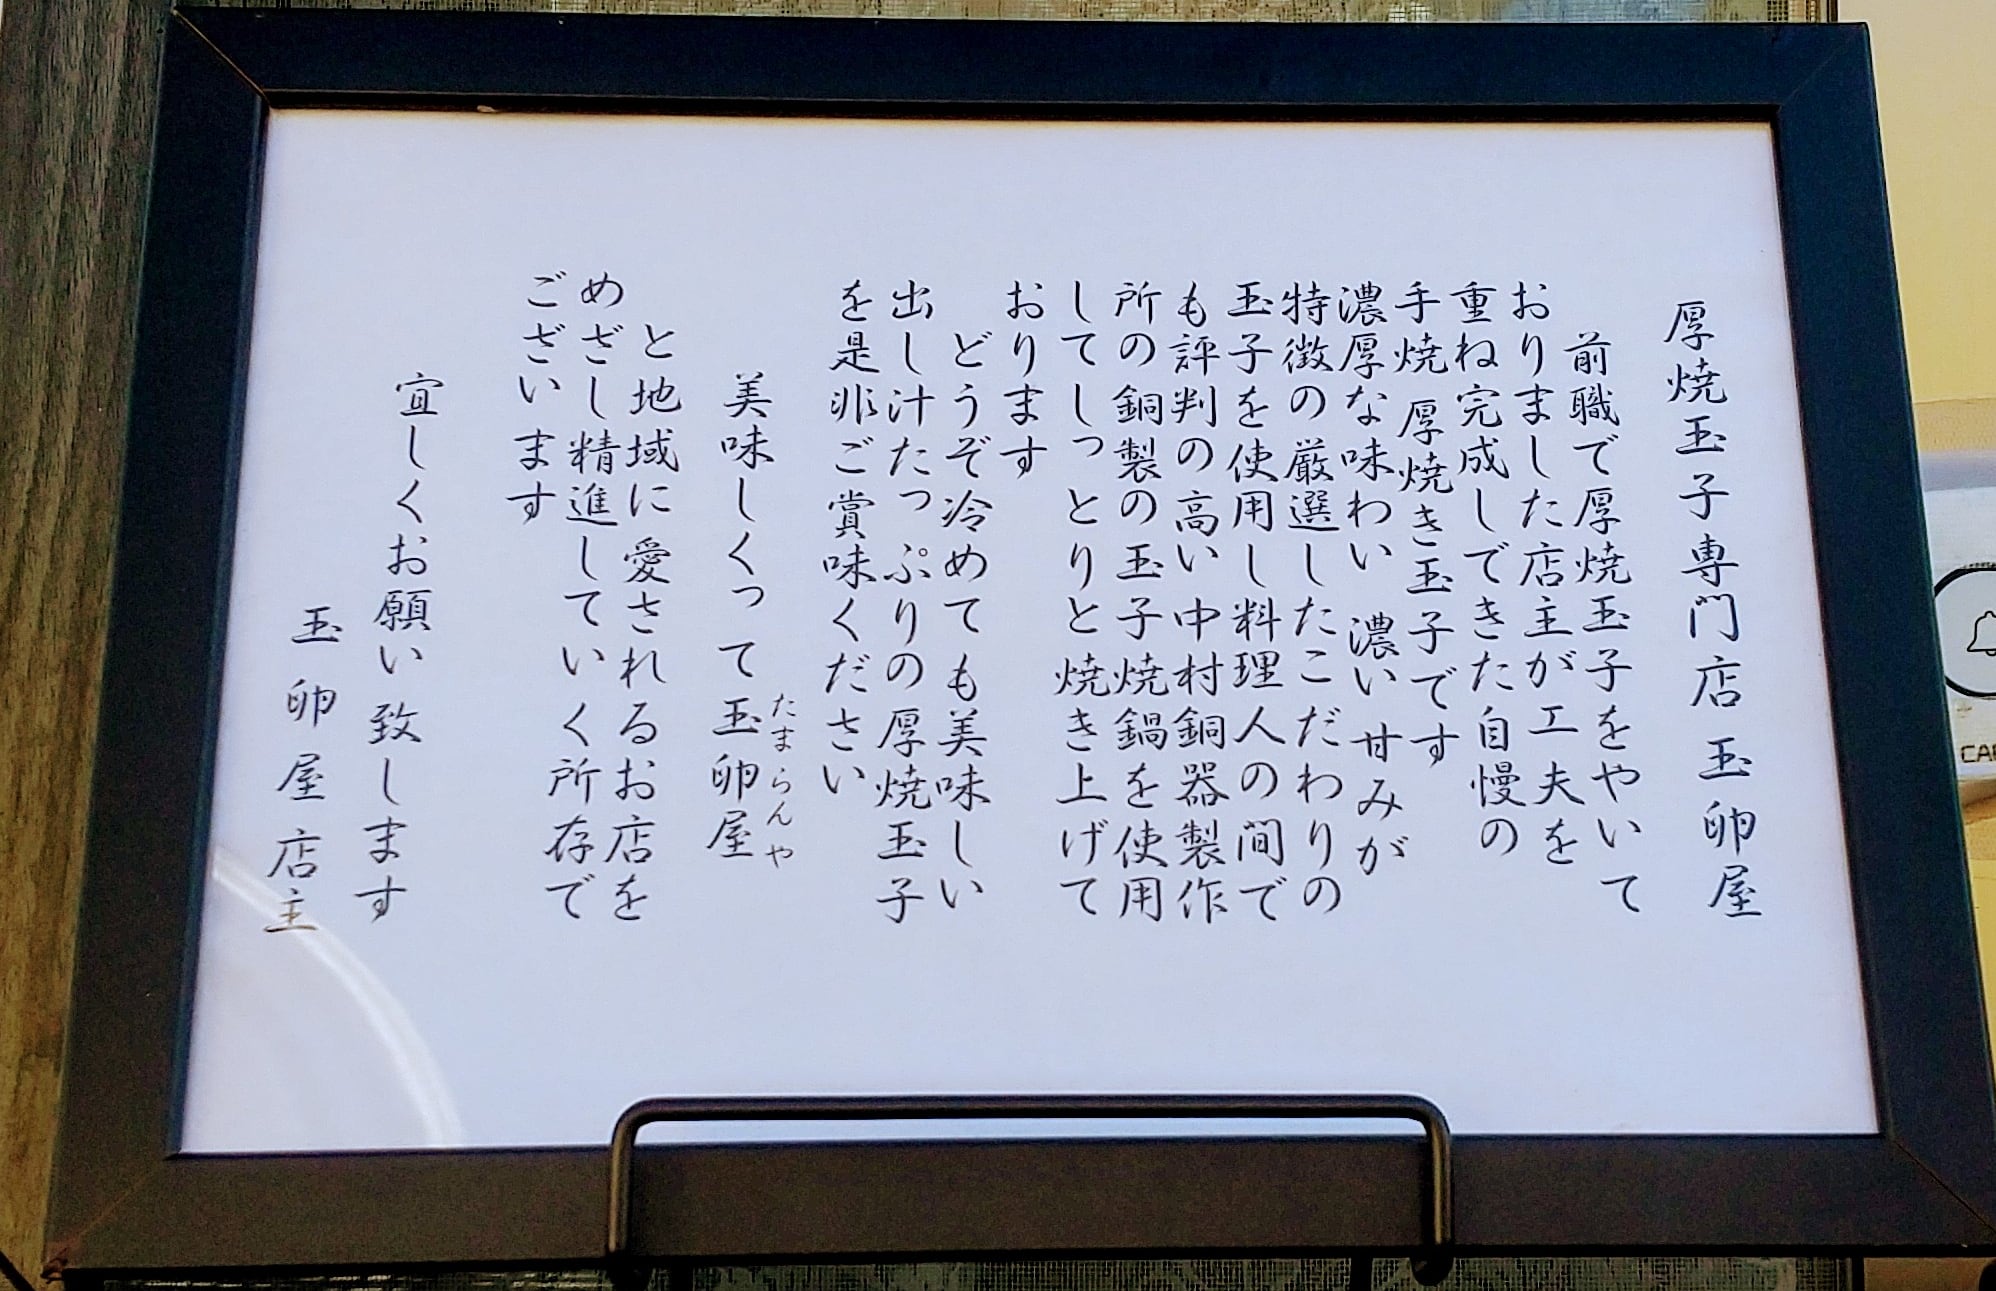 厚焼玉子専門店 玉卵屋
前職で厚焼玉子をやいて
おりました店主が工夫を
重ね完成しできた自慢の
手焼 厚焼き玉子です
濃厚な味わい 濃い甘みが
特徴の厳選したこだわりの
玉子を使用し料理人の間で
も評判の高い中村銅器製作
所の銅製の玉子焼鍋を使用
してしっとりと焼き上げて
おります
どうぞ冷めても美味しい
出し汁たっぷりの厚焼玉子
を是非ご賞味ください
たまらんや
美味しくって玉卵屋
と地域に愛されるお店を
めざし精進していく所存で
ございます
宜しくお願い致します
玉卵屋店主